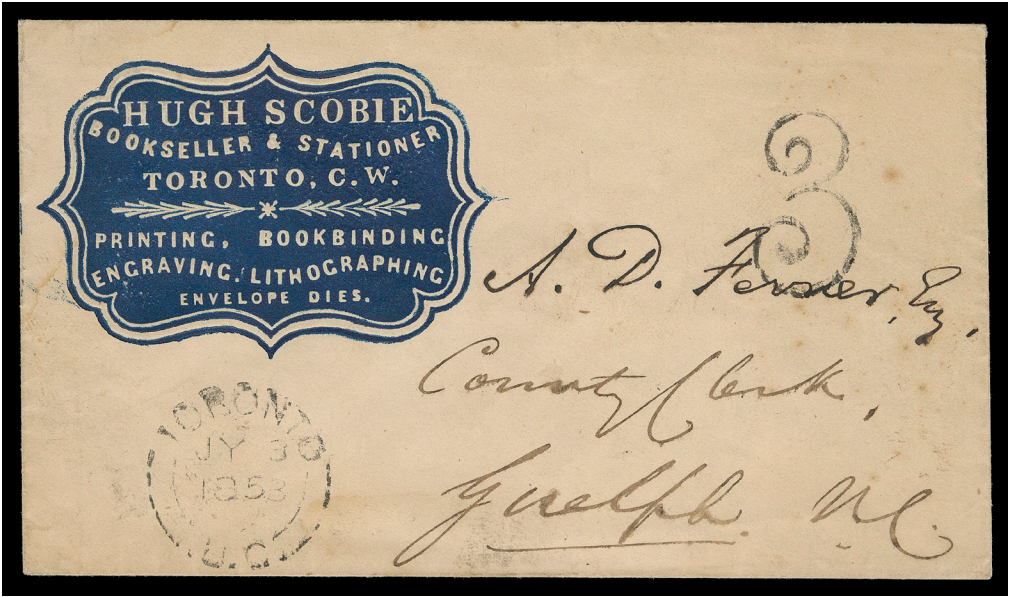 HUGH SCOBIE
BOOKSELLER & STATIONER
TORONTO, C. W.
PRINTING, BOOKBINDING
ENGRAVING, LITHOGRAPHING
ENVELOPE DIES.
3
A. D. Ferrier, Esq,
County Clerk,
Guelph.
TORONTO
JY 3
1853
U.C.